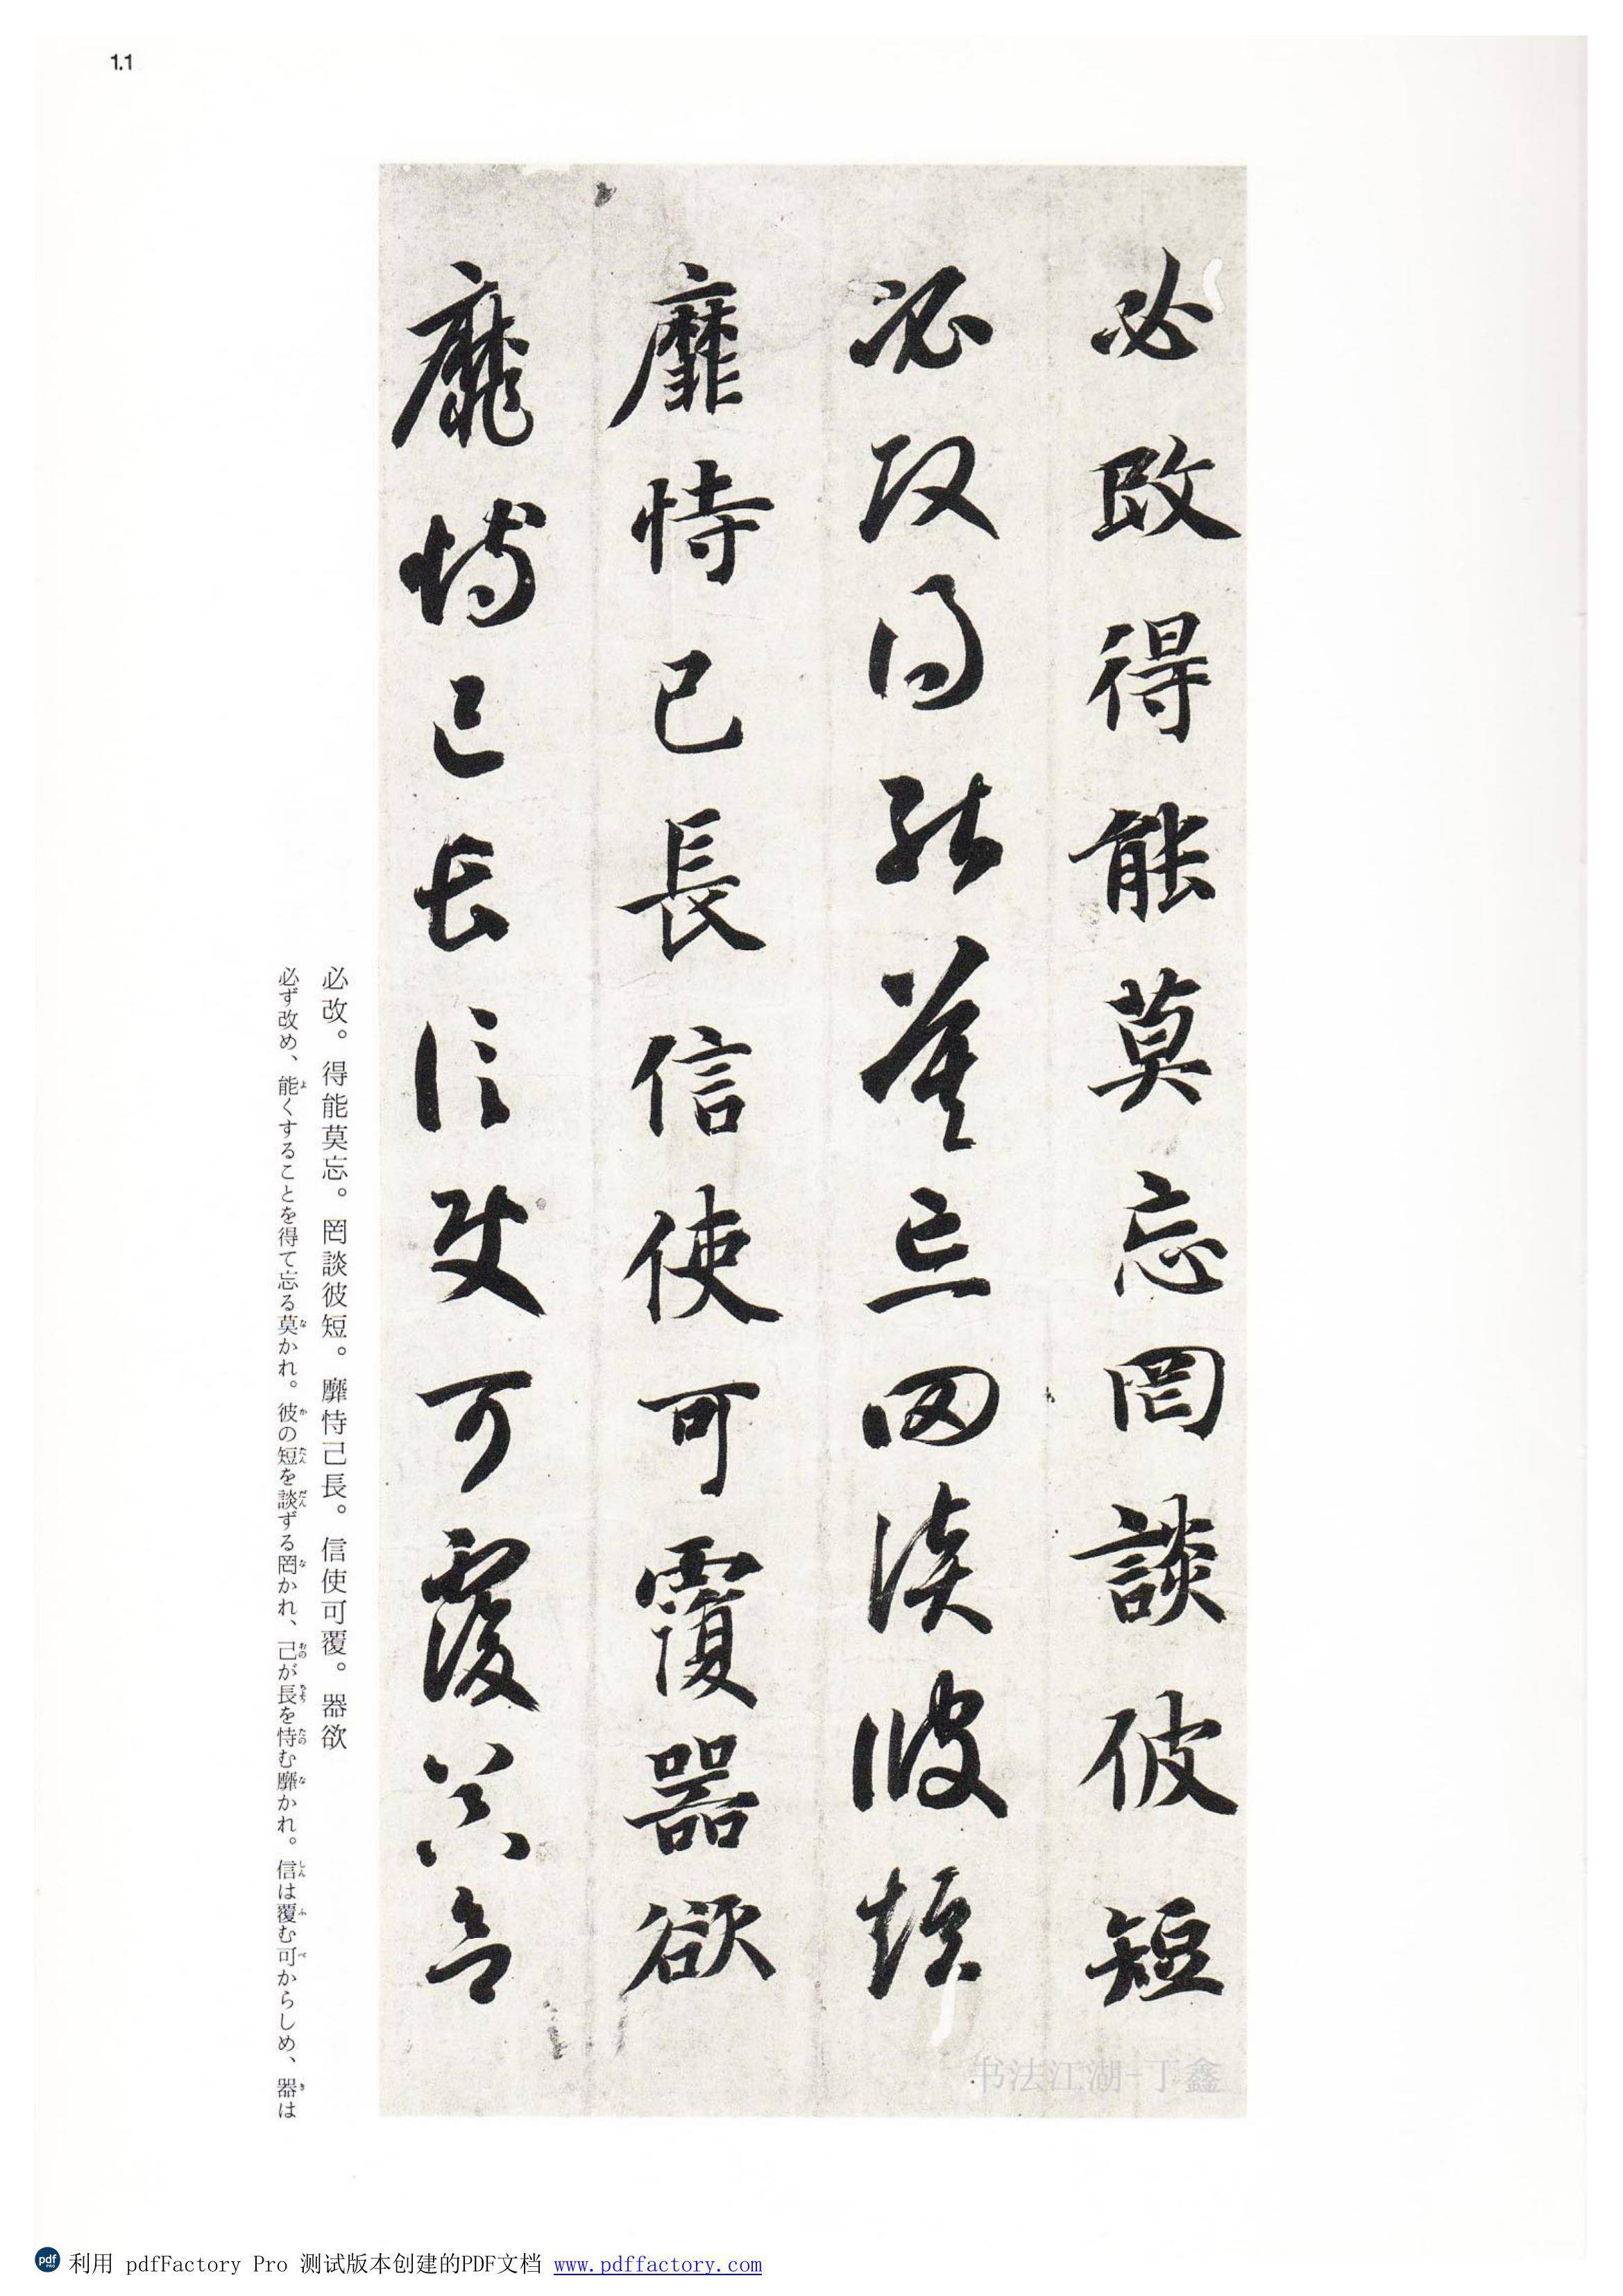 1.1
必改得能莫忘罔談彼短
必改得能莫忘罔談彼短
靡恃己長信使可覆器欲
靡恃己長信使可覆器欲
必改。得能莫忘。罔談彼短。靡恃己長。信使可覆。器欲
必ず改め、能くすることを得て忘る莫かれ。彼の短を談ずる罔かれ、己が長を恃む靡かれ。信は覆む可からしめ、器は
书法江湖-丁鑫
利用 pdfFactory Pro 测试版本创建的PDF文档 www.pdffactory.com